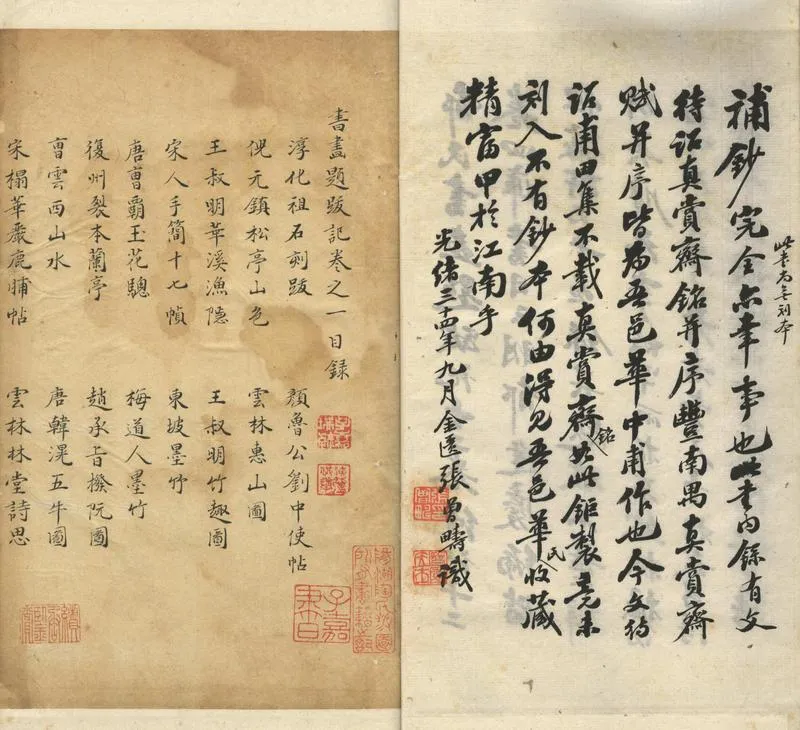 補鈔完全亦幸事也此書內錄有文
此書尚無刻本
待詔真賞齋銘并序豐南禺真賞齋
賦并序皆為吾邑華中甫作也今文待
詔甫田集不載真賞齋銘如此鉅製竟未
刻入不有鈔本何由得見吾邑華氏收藏
精富甲於江南乎
光緒三十四年九月金匱張曾疇識
書畫題跋記卷之一目録
淳化祖石刻跋 顏魯公劉中使帖
倪元鎮松亭山色 雲林惠山圖
王叔明華溪漁隱 王叔明竹趣圖
宋人手簡十七幀 東坡墨竹
唐曹霸玉花驄 梅道人墨竹
復州裂本蘭亭 趙承旨撥阮圖
曹雲西山水 唐韓滉五牛圖
宋搨華嚴鹿脯帖 雲林林堂詩思